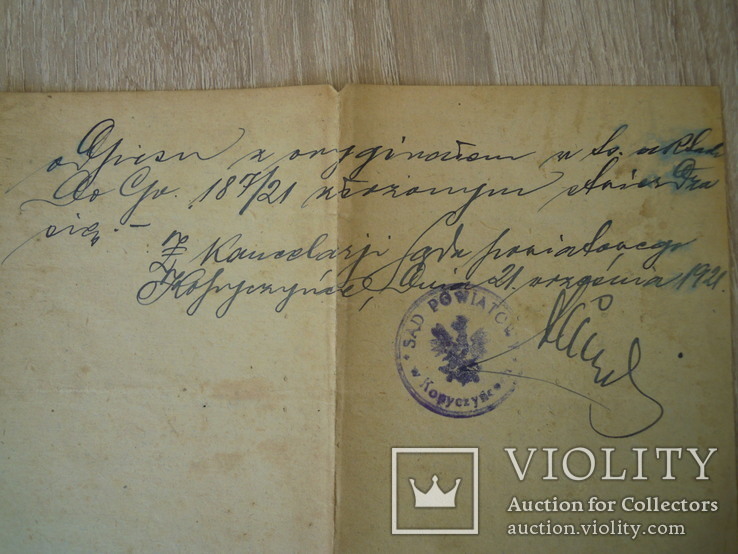 odpisu z oryginałem w ts. aktach
Do Cps. 187/21 złożonym stwierdza
się.-
Z Kancelarji Sądu powiatowego
Kopyczyńce, dnia 21. września 1921.
SĄD POWIATOW
w Kopyczyńc
VIOLITY
Auction for Collectors
auction.violity.com